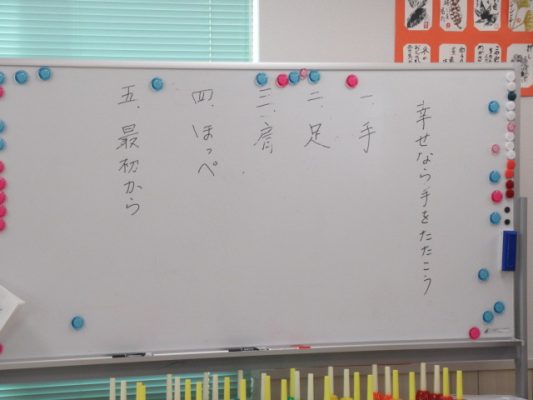 幸せなら手をたたこう
一.手
二.足
三.肩
四.ほっぺ
五.最初から